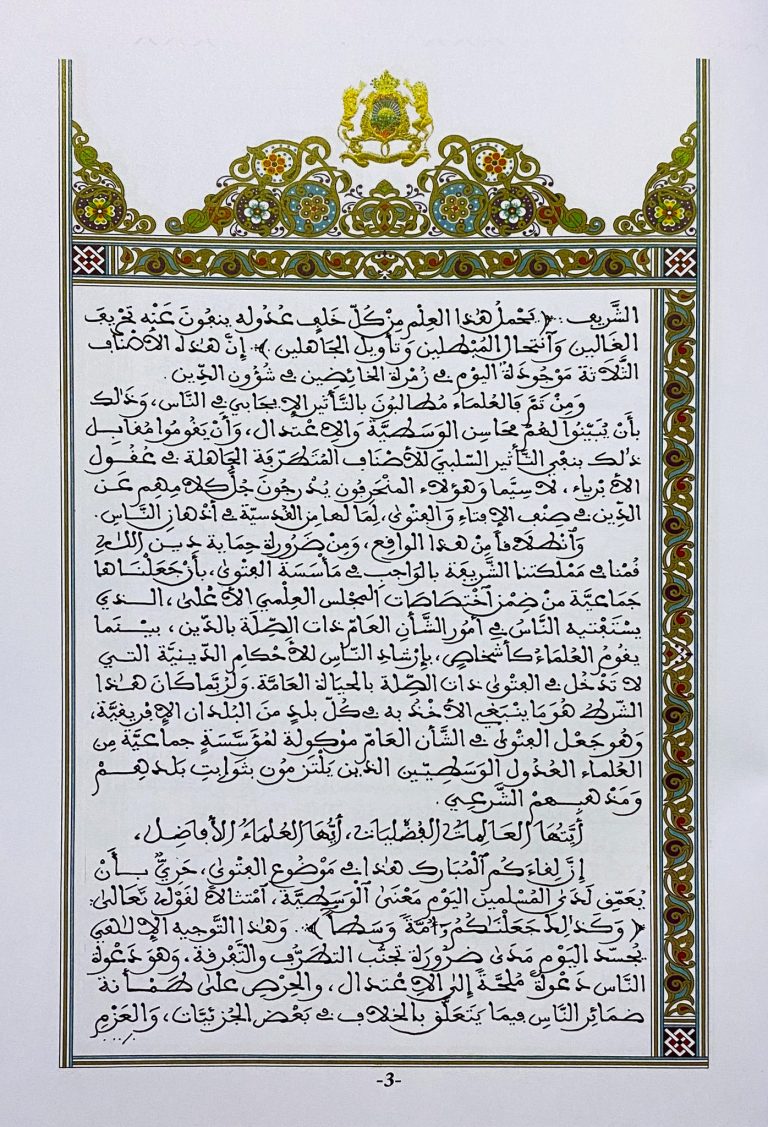 الشَّرِيف: ﴿ يَحْمِلُ هٰذا العِلْمَ مِنْ كُلِّ خَلَفٍ عُدُولُه ينفونَ عَنْه تحْرِيفَ
الغالين وَٱنتحالَ المُبْطلين وَتأويلَ الجَاهلين ﴾. إِنَّ هٰذه الأصْناف
الثَّلاثة مَوْجُودَةٌ اليوْم في زُمْرة الخائِضين في شؤون الدِّين.
وَمِنْ ثَمَّ فالعُلماءُ مُطالبُونَ بالتَّأثير الإِيجابي في النَّاس، وَذٰلك
بأَنْ يُبيِّنوا لهُمْ محَاسِن الوَسَطيَّة وَالاِعْتدال، وَأَنْ يقُومُوا مُقابِل
ذٰلك بنفْيِ التَّأثير السَّلبيّ للأَصْناف المُتطَرِّفة الجَاهلة في عُقُول
الأَبْرِياء، لا سِيَّما وَهؤُلاء المنْحَرِفون يُدْرِجونَ جُلَّ كلامِهِم عَن
الدِّين في صِنْف الإِفتاءِ وَالفتْوى، لِمَا لها مِن القُدسيَّة في أذْهان النَّاسِ.
وَٱنْطلاقاً مِنْ هٰذا الواقِع، وَمِنْ ضَرُورَة حِمَاية دين الله
قُمْنا في مَمْلكتنا الشَّرِيفة بالوَاجب في مَأْسَسَة الفتْوى، بأَنْ جَعَلْنَاها
جَمَاعيَّة مِنْ ضِمْن ٱخْتِصَاصَات المَجْلس العِلْمي الأَعْلى، الذي
يسْتَفْتيه النَّاسُ في أمُور الشَّأن العَامّ ذات الصِّلة بالدّين، بيْنَما
يقُومُ العُلمَاءُ كأَشْخاصٍ، بإِرْشادِ النّاس للأَحْكام الدِّينيَّة التي
لا تدْخُل في الفتْوى ذات الصِّلة بالحَياة العَامَّة. وَلرُبَّما كانَ هٰذا
الشّرطُ هُوَ مَا ينْبَغي الأَخْذُ به في كُلّ بلدٍ منَ البُلدان الإفريقيَّة،
وَهُو جَعْل الفتْوى في الشَّأن العَامّ مَوْكولة لمُؤَسَّسَةٍ جماعيَّة مِن
العُلمَاء العُدُول الوَسَطيّين الذين يلْتزمُون بثوَابِت بلدهِمْ
وَمَذْهبِهِمْ الشَّرْعِي.
أيَّتُهَا العَالِمَاتُ الفُضْلَيَات، أيُّهَا العُلمَاءُ الأَفاضِل،
إنَّ لِقاءَكم المُبَارك هٰذا في مَوْضُوع الفتْوى، حَرِيٌّ بأَنْ
يُعَمِّق لَدَى المُسْلمينَ اليوْم مَعْنَى الْوَسَطِيَّة، امْتثالا لقَوْله تَعَالى:
﴿ وَكَذَٰلِكَ جَعَلْنَاكُمُ أُمَّةً وَسَطاً ﴾. وَهٰذا التَّوجيه الإِلٰهي
يجُسّد اليوْم مَدَى ضَرُورَة تجنُّب التطرُّف والتَّفْرِقة، وَهوَ دَعْوة
النَّاس دَعْوةً مُلحَّة إلى الاِعْتدال، والحِرْص على طَمْأنة
ضمَائر النَّاسِ فيمَا يتَعَلَّق بالخلاف في بَعْض الجُزئيَّات، وَالعَزْم
-3-